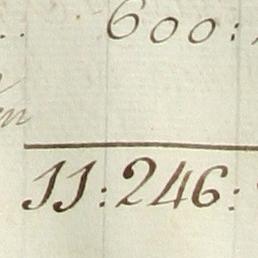 .. 600:
11:246: